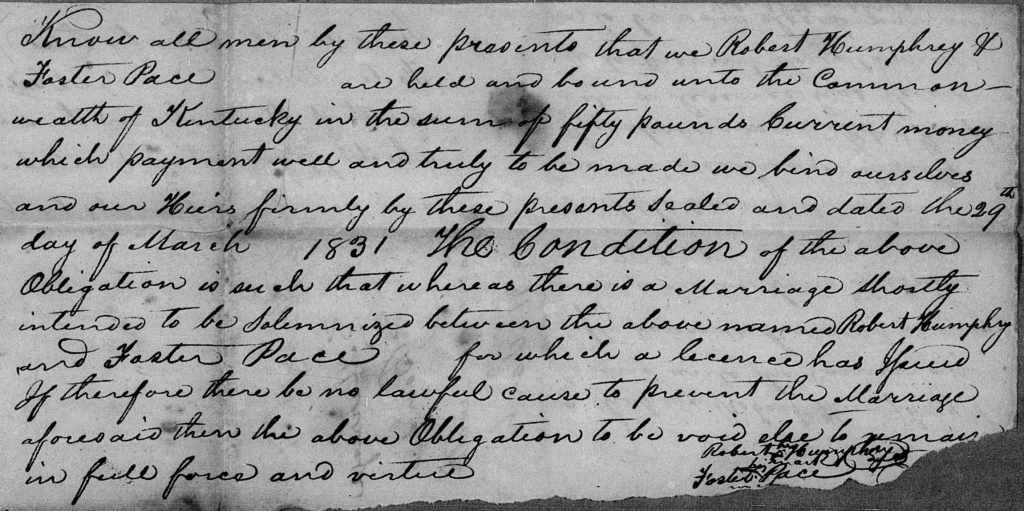 Know all men by these presents that we Robert Humphrey &
Foster Pace are held and bound unto the Common-
wealth of Kentucky in the sum of fifty pounds Current money
which payment well and truly to be made we bind ourselves
and our Heirs firmly by these presents Sealed and dated the 29th
day of March 1831 The Condition of the above
Obligation is such that whereas there is a Marriage Shortly
intended to be Solemnized between the above named Robert Humphry
and Foster Pace for which a licence has Issued
If therefore there be no lawful cause to prevent the Marriage
aforesaid then the above Obligation to be void else to remain
in full force and virtue
Robert Humphrey
Foster Pace